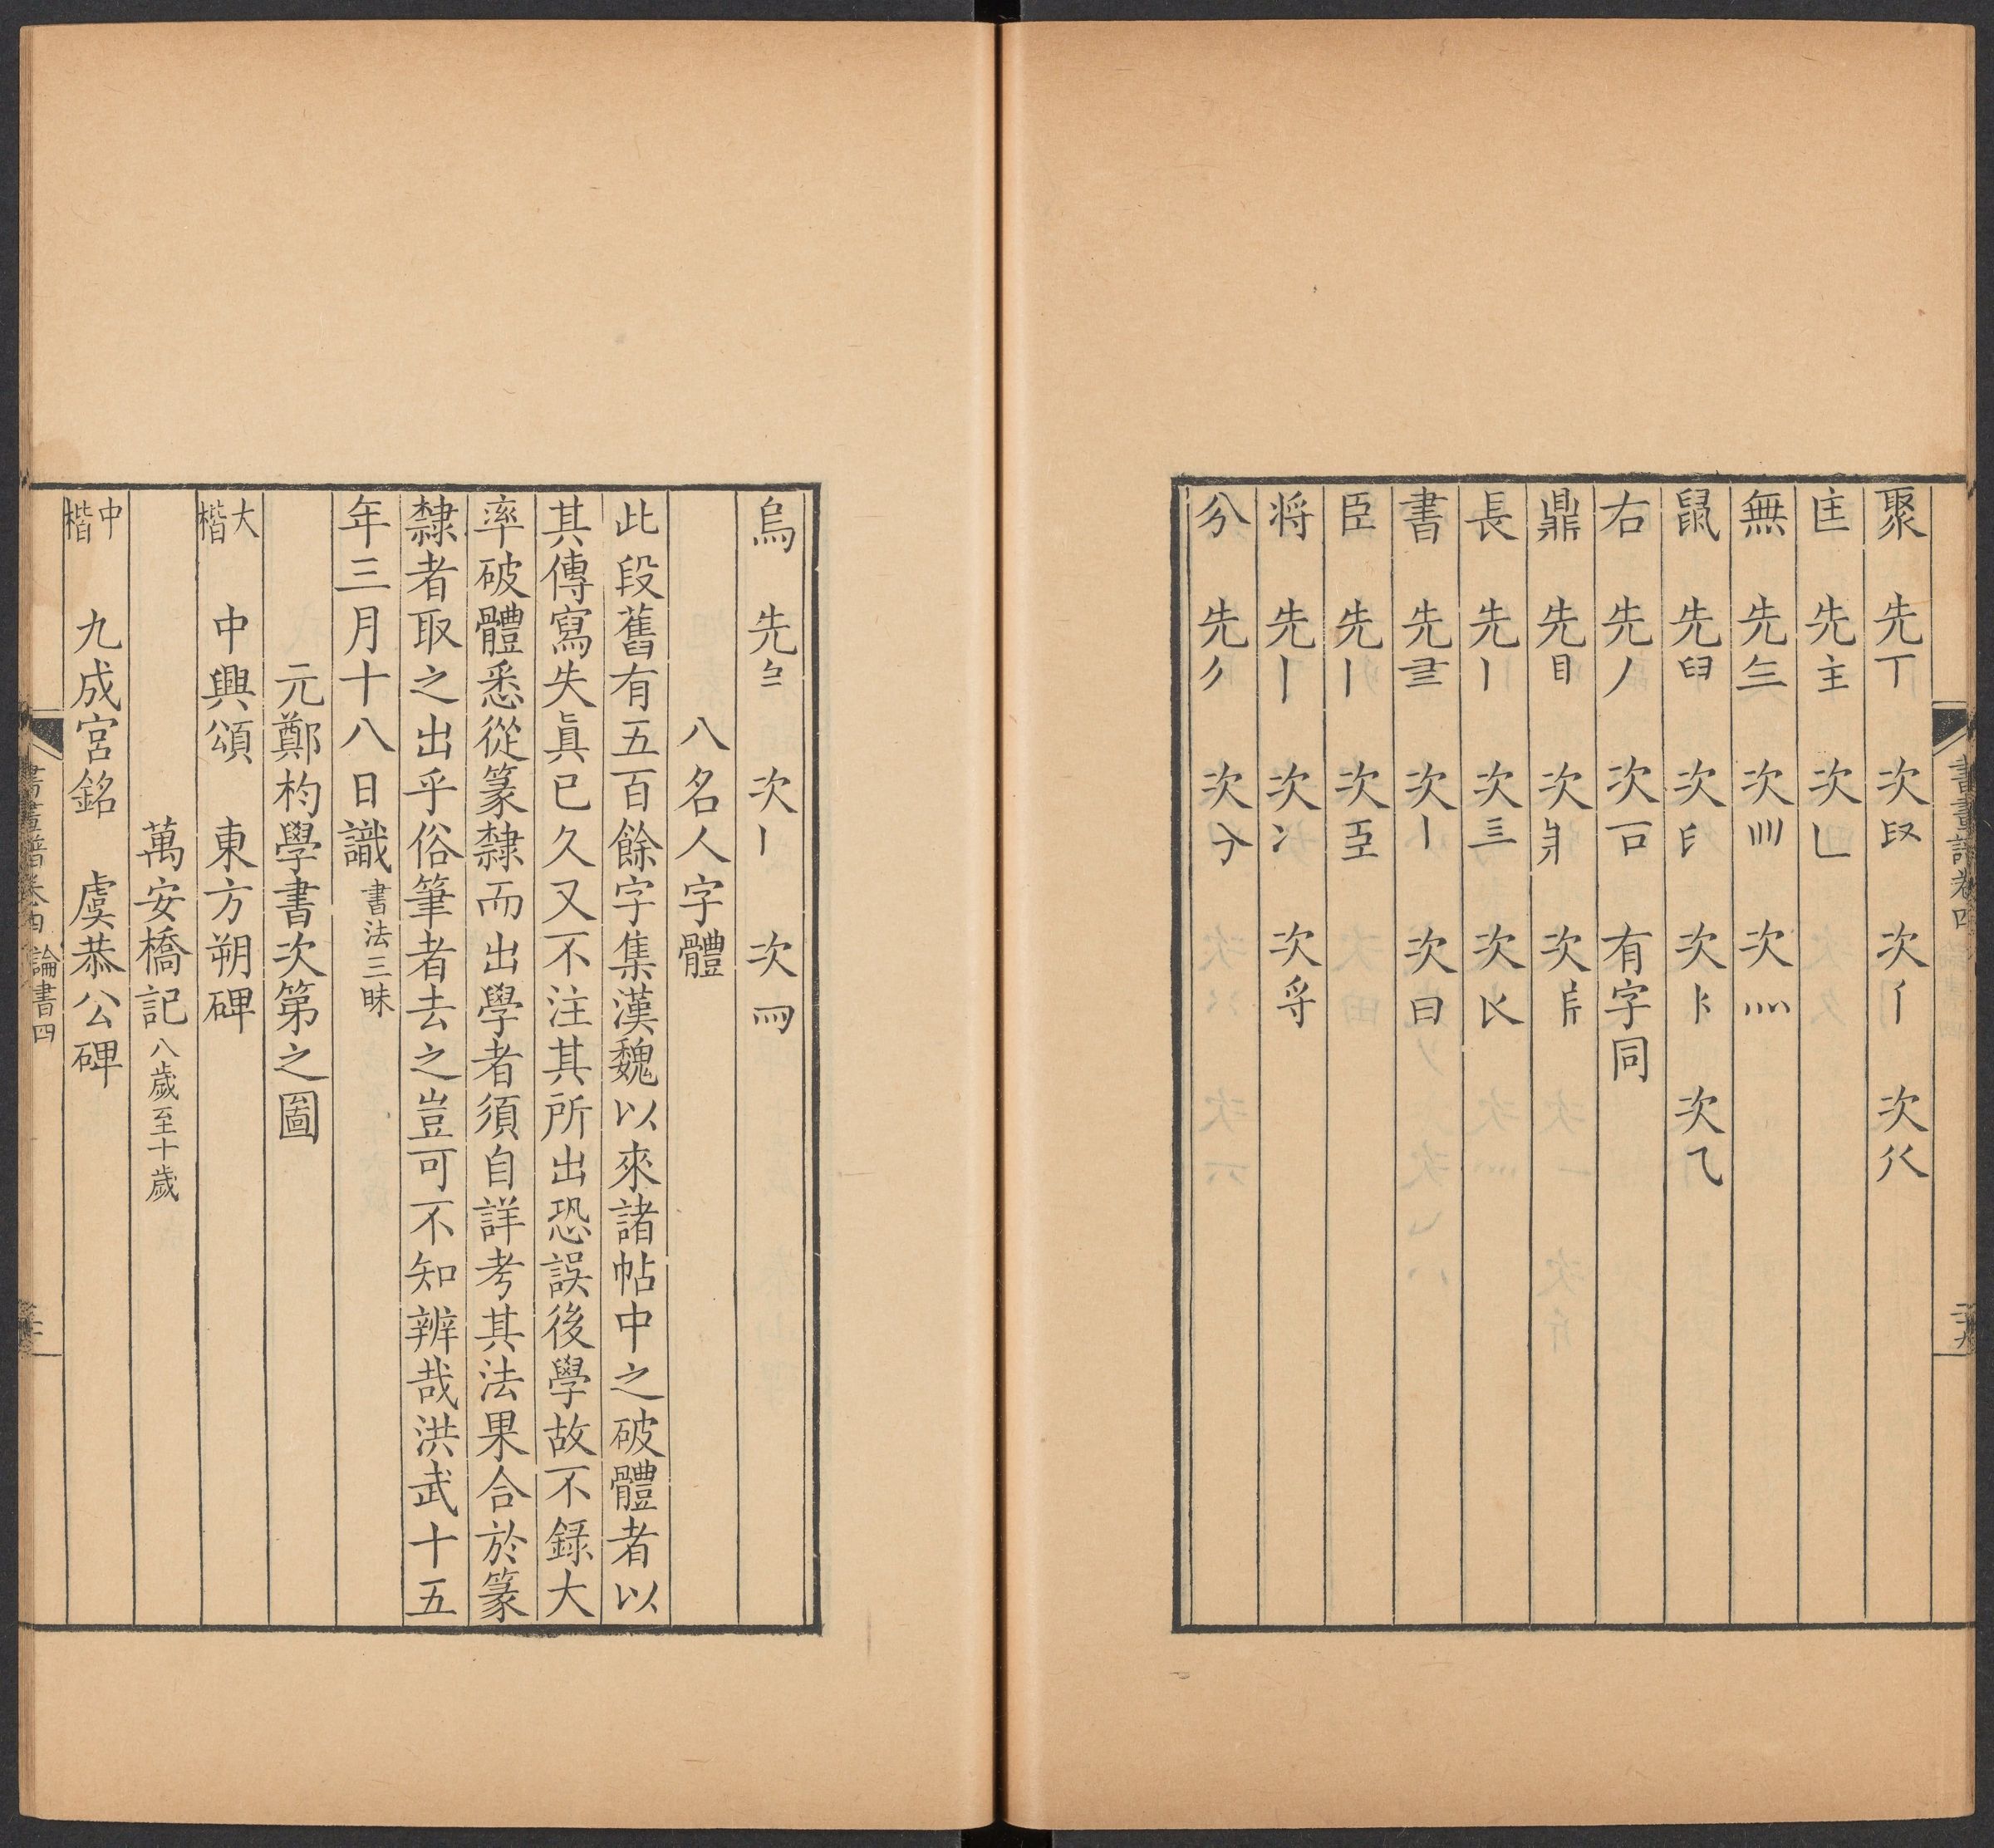 書畫譜卷四
二十九
聚 先丅 次 次 次
匡 先主 次乚
無 先 次 次灬
鼠 先臼 次 次 次乁
右 先丿 次 有字同
鼎 先目 次 次
長 先丨 次三 次
書 先 次丨 次曰
臣 先丨 次
将 先丨 次冫 次寽
兮 先 次
烏 先 次丨 次
八名人字體
此段舊有五百餘字集漢魏以來諸帖中之破體者以
其傳寫失眞已久又不注其所出恐誤後學故不錄大
率破體悉從篆隸而出學者須自詳考其法果合於篆
隸者取之出乎俗筆者去之豈可不知辨哉洪武十五
年三月十八日識 書法三昧
元鄭杓學書次第之圖
大楷 中興頌 東方朔碑
萬安橋記 八歲至十歲
中楷 九成宮銘 虞恭公碑
書畫譜卷四 論書四
三十